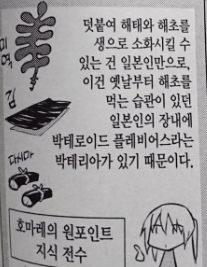 미역
김
다시마
덧붙여 해태와 해초를
생으로 소화시킬 수
있는 건 일본인만으로,
이건 옛날부터 해초를
먹는 습관이 있던
일본인의 장내에
박테로이드 플레비어스라는
박테리아가 있기 때문이다.
호마레의 원포인트
지식 전수